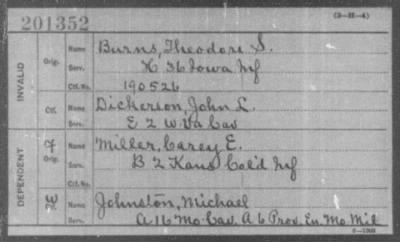 201352
(3-H-4)
INVALID
Orig.
Name Burns, Theodore S.
Serv. K 36 Iowa Inf
Ctf. No. 190526
Ctf.
Name Dickerson, John L.
Serv. E 2 W. Va Cav
DEPENDENT
Orig.
Name Miller, Carey E.
Serv. B 2 Kans Col'd Inf
Ctf. No.
Name Johnston, Michael
Serv. A 16 Mo. Cav. A 6 Prov. En. Mo. Mil